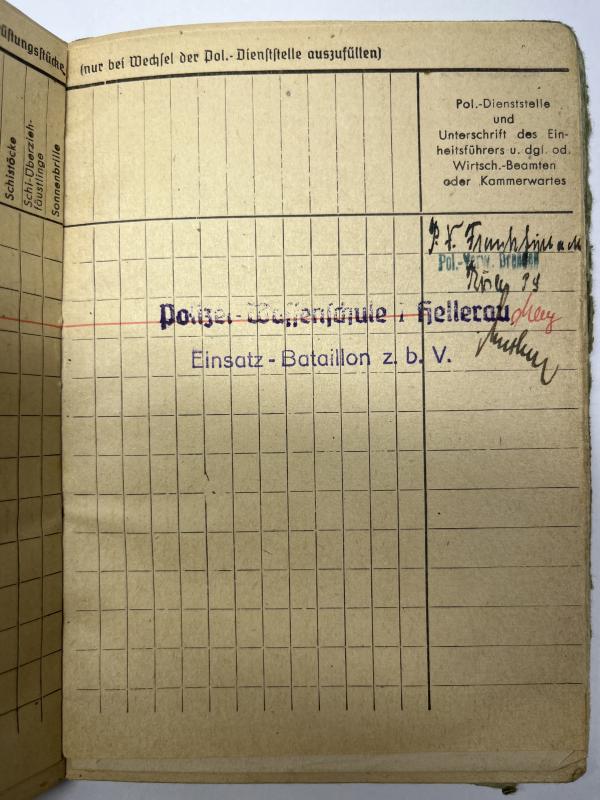 üstungsstücke
Schistöcke
Schi-Überzieh-
fäustlinge
Sonnenbrille
(nur bei Wechsel der Pol.-Dienststelle auszufüllen)
Pol.-Dienststelle
und
Unterschrift des Ein-
heitsführers u. dgl. od.
Wirtsch.-Beamten
oder Kammerwartes
Pol.-Verw. Dresden
Polizei-Waffenschule I Hellerau
Einsatz-Bataillon z. b. V.